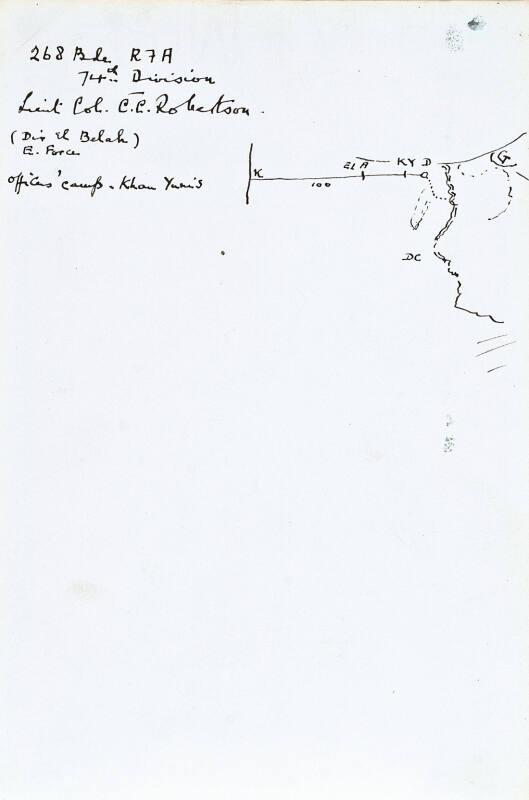 268 Bde R7A
74th Division
Lieut Col. C.C. Robertson.
(Dir El Belah)
E. Force
Officers' camp. Khan Yunis
K
100
EL A
KY
D
G
DC